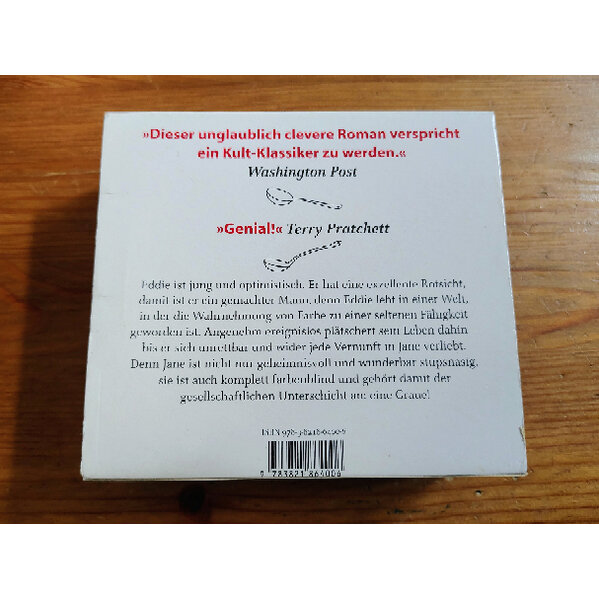 »Dieser unglaublich clevere Roman verspricht
ein Kult-Klassiker zu werden.«
Washington Post
»Genial!« Terry Pratchett
Eddie ist jung und optimistisch. Er hat eine exzellente Rotsicht,
damit ist er ein gemachter Mann, denn Eddie lebt in einer Welt,
in der die Wahrnehmung von Farbe zu einer seltenen Fähigkeit
geworden ist. Angenehm ereignislos plätschert sein Leben dahin
bis er sich unrettbar und wider jede Vernunft in Jane verliebt.
Denn Jane ist nicht nur geheimnisvoll und wunderbar stupsnasig,
sie ist auch komplett farbenblind und gehört damit der
gesellschaftlichen Unterschicht an: eine Graue!
ISBN 978-3-8218-6400-6
9 783821 864006